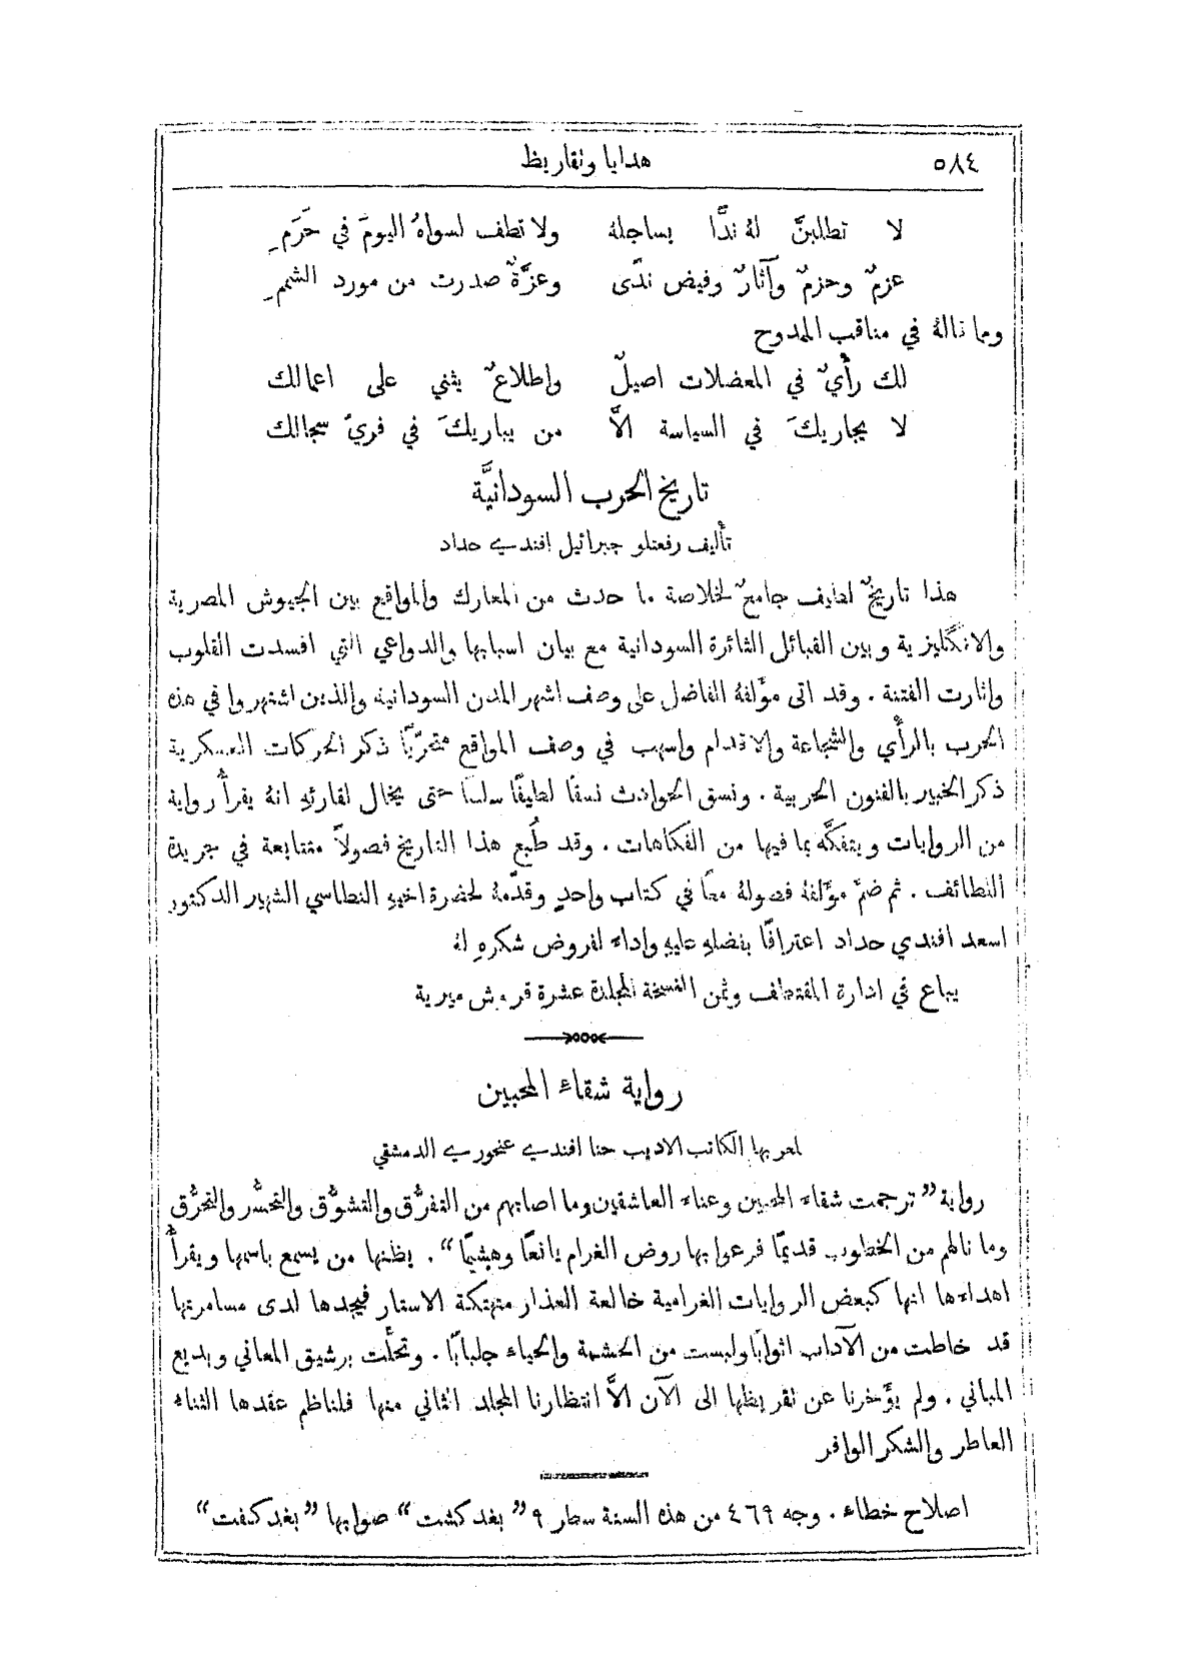 ٥٨٤ هدايا وتقاريظ
لا تطلبنَّ لهُ ندًّا يساجلهُ ولا تطف لسواهُ اليومَ في حَرَمِ
عزمٌ وحزمٌ وآثارٌ وفيض ندًى وعزَّةٌ صدرت من مورد الشممِ
وما قالهُ في مناقب الممدوح
لك رأيٌ في المعضلات اصيلٌ واطلاعٌ يثني على اعمالك
لا يجاريكَ في السياسة الاَّ من يباريكَ في فريّ سجالك
تاريخ الحرب السودانيَّة
تأليف رفعتلو جبرائيل افندي حداد
هذا تاريخٌ لطيف جامعٌ لخلاصة ما حدث من المعارك والمواقع بين الجيوش المصرية
والانكليزية وبين القبائل الثائرة السودانية مع بيان اسبابها والدواعي التي افسدت القلوب
واثارت الفتنة . وقد اتى مؤلفهُ الفاضل على وصف اشهر المدن السودانية والذين اشتهروا في هذه
الحرب بالرأي والشجاعة والاقدام واسهب في وصف المواقع متحرّيًا ذكر الحركات العسكرية
ذكر الخبير بالفنون الحربية . ونسق الحوادث نسقًا لطيفًا سلسًا حتى يخال لقارئهِ انهُ يقرأُ رواية
من الروايات ويتفكَّه بما فيها من الفكاهات . وقد طُبع هذا التاريخ فصولاً متتابعة في جريدة
اللطائف . ثم ضمَّ مؤلفهُ فصولهُ معًا في كتاب واحدٍ وقدَّمهُ لحضرة اخيهِ النطاسي الشهير الدكتور
اسعد افندي حداد اعترافًا بفضلهِ عليهِ واداءً لفروض شكرهِ لهُ
يباع في ادارة المقتطف وثمن النسخة المجلدة عشرة قروش ميرية
رواية شقاء المحبين
لمعربها الكاتب الاديب حنا افندي عنحوري الدمشقي
رواية ” ترجمت شقاء المحبين وعناء العاشقين وما اصابهم من التفرُّق والتشوُّق والتحسُّر والتحرُّق
وما نالهم من الخطوب قديمًا فرعوا بها روض الغرام يانعًا وهشيمًا “ . يظنها من يسمع باسمها ويقرأُ
اهداءها انها كبعض الروايات الغرامية خالعة العذار منهتكة الاستار فيجدها لدى مسامرتها
قد خاطت من الآداب اثوابًا ولبست من الحشمة والحياء جلبابًا . وتحلَّت برشيق المعاني وبديع
المباني . ولم يؤَخرنا عن تقريظها الى الآن الاَّ انتظارنا المجلد الثاني منها فلناظم عقدها الثناء
العاطر والشكر الوافر
اصلاح خطاء . وجه ٤٦٩ من هذه السنة سطر ٩ ” بغد كشت “ صوابها ” بغد كفت “